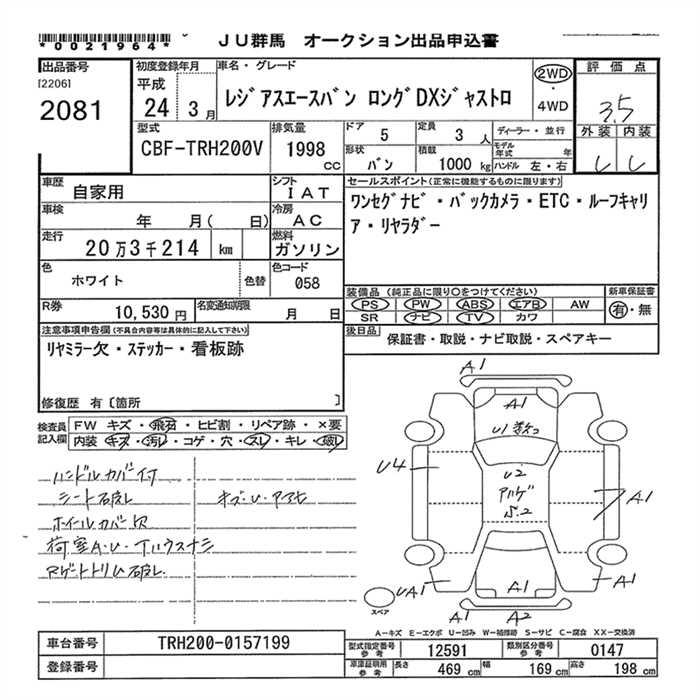 *0021964*
JU群馬 オークション出品申込書
出品番号
[2206]
2081
初度登録年月
平成
24 3月
車名・グレード
レジアスエースバン ロングDXジャストロ
2WD
・
4WD
評価点
3.5
外装 内装
型式
CBF-TRH200V
排気量
1998
cc
ドア 5
定員 3 人
ディーラー・並行
モデル年式 年
形状 バン
積載 1000 kg
ハンドル 左・右
車歴
自家用
シフト
IAT
セールスポイント(正常に機能するものに限ります)
ワンセグナビ・バックカメラ・ETC・ルーフキャリ
ア・リヤラダー
車検
年 月( 日)
冷房
AC
走行
20万3千214 km
燃料
ガソリン
色
ホワイト
色替
色コード
058
装備品(純正品に限り○をつけてください)
新車保証書
PS PW ABS エアB AW
SR ナビ TV カワ
有・無
R券
10,530円
名変通知期限
月 日
後日品
保証書・取説・ナビ取説・スペアキー
注意事項申告欄(不具合内容等は具体的に記入して下さい)
リヤミラー欠・ステッカー・看板跡
修復歴 有〔箇所 〕
検査員記入欄
FW キズ・飛石・ヒビ割・リペア跡・×要
内装 キズ・汚レ・コゲ・穴・スレ・キレ・破レ
ハンドルカバー付
シート破レ
キズ・U・アマセ
ホイールカバー欠
荷室A・U・
破レ
A1
A1
U1
U4
U2
A1
A1
UA1
A1
A1
A2
スペア
A−キズ E−エクボ U−凹み W−補修跡 S−サビ C−腐食 XX−交換済
車台番号
TRH200-0157199
型式指定番号 参考
12591
類別区分番号 参考
0147
登録番号
車庫証明用 参考
長さ 469 cm
幅 169 cm
高さ 198 cm